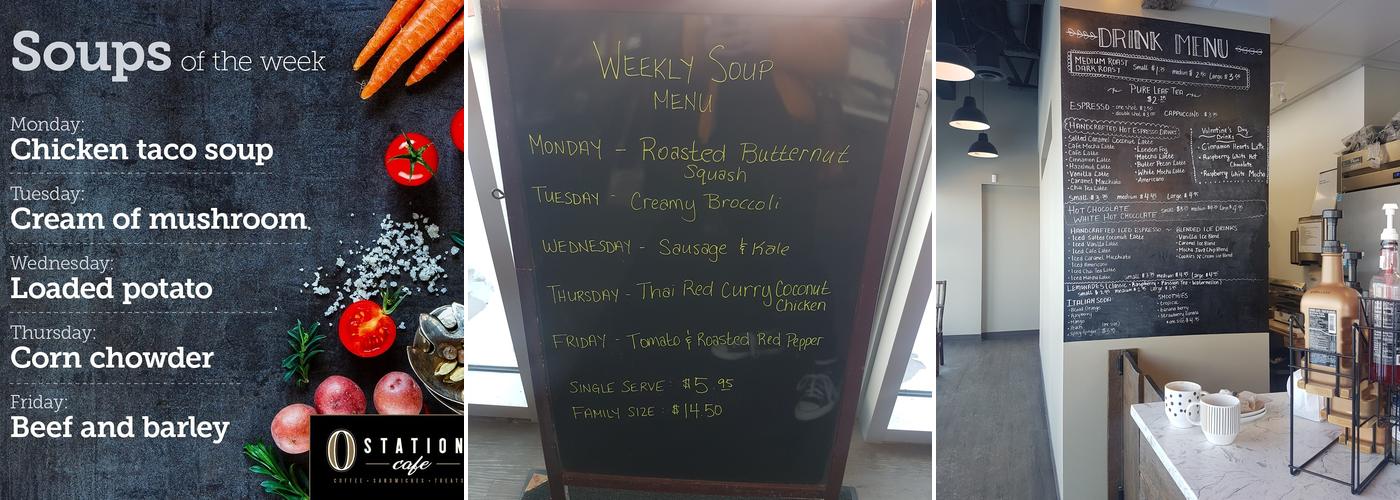 Soups of the week
Monday:
Chicken taco soup
Tuesday:
Cream of mushroom
Wednesday:
Loaded potato
Thursday:
Corn chowder
Friday:
Beef and barley
O STATION
cafe
COFFEE • SANDWICHES • TREATS
WEEKLY SOUP
MENU
MONDAY - Roasted Butternut
Squash
TUESDAY - Creamy Broccoli
WEDNESDAY - Sausage & Kale
THURSDAY - Thai Red Curry Coconut
Chicken
FRIDAY - Tomato & Roasted Red Pepper
SINGLE SERVE: $5.95
FAMILY SIZE: $14.50
DRINK MENU
MEDIUM ROAST
DARK ROAST
PURE LEAF TEA
ESPRESSO - one shot
double shot
CAPPUCCINO
HANDCRAFTED HOT ESPRESSO DRINKS
Salted Caramel Coconut Latte
Cafe Mocha Latte
Cafe Latte
Cinnamon Latte
Hazelnut Latte
Vanilla Latte
Caramel Macchiato
Chai Tea Latte
London Fog
Matcha Latte
Butter Pecan Latte
White Mocha Latte
Americano
Valentine's Day
Drinks
Cinnamon Hearts Latte
Raspberry White Hot
Chocolate
Raspberry White Mocha
HOT CHOCOLATE
WHITE HOT CHOCOLATE
HANDCRAFTED ICED ESPRESSO
Iced Salted Coconut Latte
Iced Vanilla Latte
Iced Cafe Latte
Iced Caramel Macchiato
Iced Americano
Iced Chai Tea Latte
Iced Matcha Latte
BLENDED ICE DRINKS
Vanilla Ice Blend
Caramel Ice Blend
Mocha Java Chip Blend
Cookies N Cream Ice Blend
LEMONADES (Classic • Raspberry • Passion Tea • Watermelon)
ITALIAN SODA
Blood Orange
Raspberry
Mango
Peach
SMOOTHIES
tropical
banana berry
strawberry banana